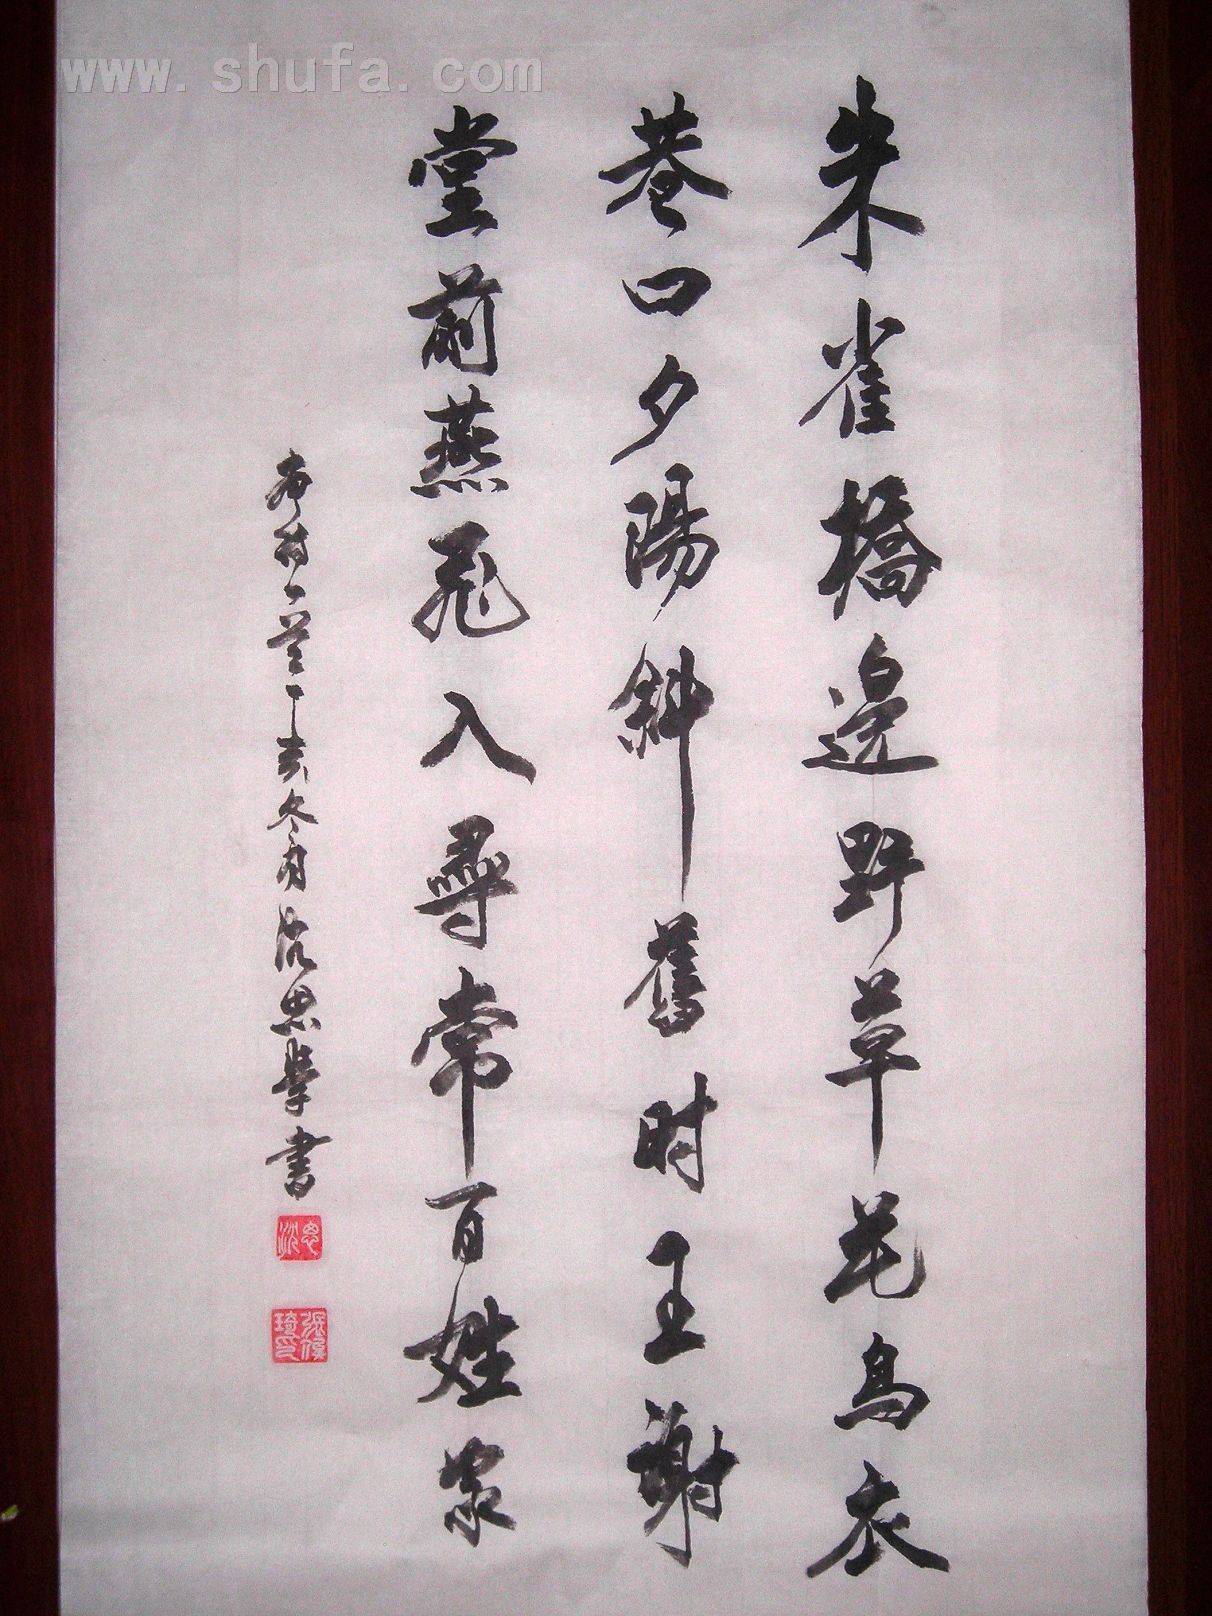 www.shufa.com
朱雀橋邊野草花烏衣
巷口夕陽斜舊时王謝
堂前燕飛入尋常百姓家
唐詩一首丁亥冬月沈思學書